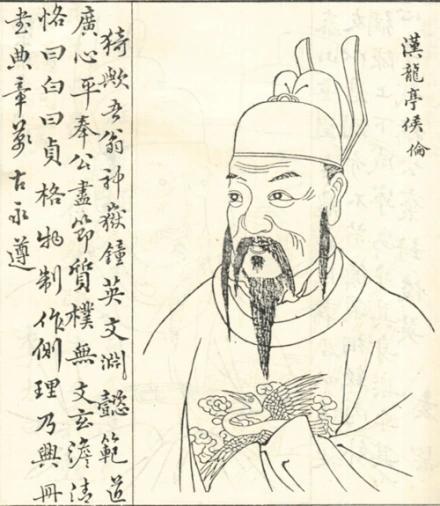 漢龍亭侯倫
猗歟吾翁神嶽鐘英文淵懿範道
廣心平奉公盡節質樸無文玄澹清
恪曰白曰貞格物制作側理乃興冊
書典章萬古永遵